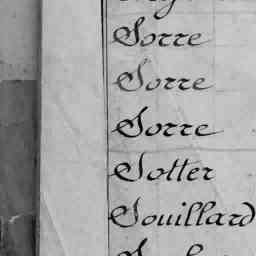 Sorre
Sorre
Sorre
Sotter
Souillard